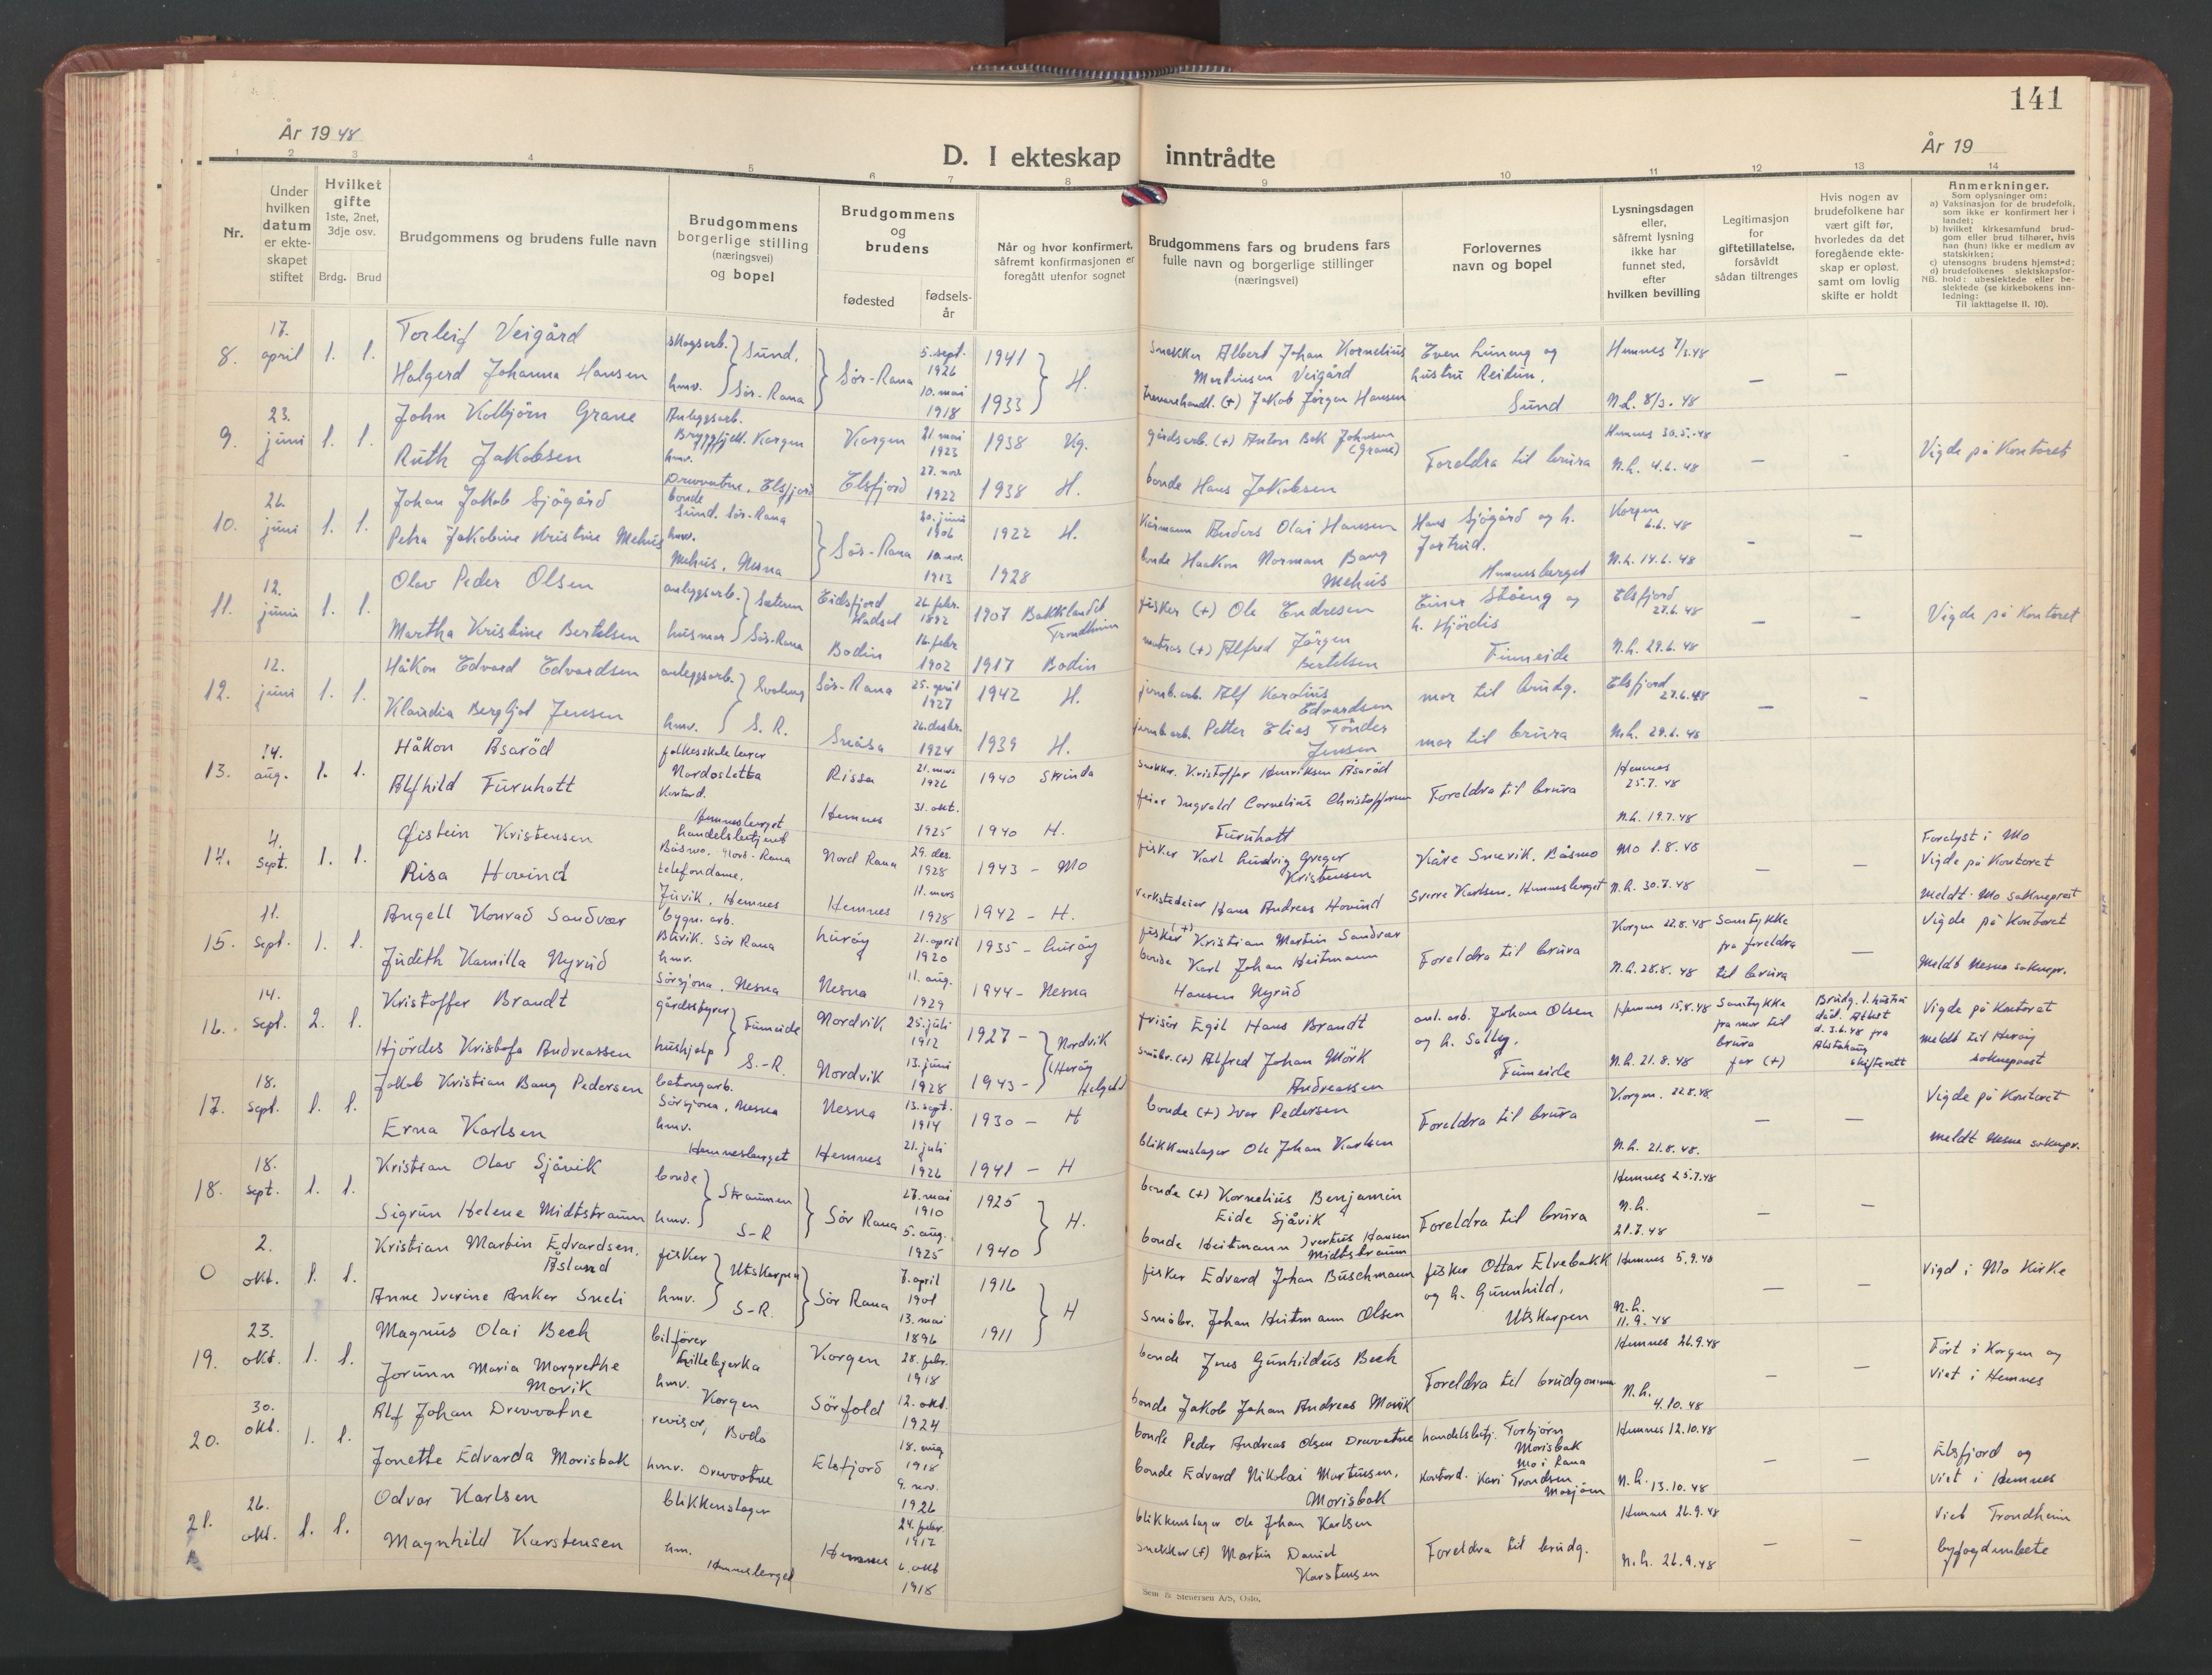 141
År 1948
År 19
D. I ekteskap inntrådte
1 2 3 4 5 6 7 8 9 10 11 12 13 14
Nr.
Under hvilken datum er ekteskapet stiftet
Hvilket gifte 1ste, 2net, 3dje osv.
Brdg. Brud
Brudgommens og brudens fulle navn
Brudgommens borgerlige stilling (næringsvei) og bopel
Brudgommens og brudens
fødested
fødselsår
Når og hvor konfirmert, såfremt konfirmasjonen er foregått utenfor sognet
Brudgommens fars og brudens fars fulle navn og borgerlige stillinger (næringsvei)
Forlovernes navn og bopel
Lysningsdagen eller, såfremt lysning ikke har funnet sted, efter hvilken bevilling
Legitimasjon for giftetillatelse, forsåvidt sådan tiltrenges
Hvis nogen av brudefolkene har vært gift før, hvorledes da det foregående ekteskap er opløst, samt om lovlig skifte er holdt
Anmerkninger.
Som oplysninger om:
a) Vaksinasjon for de brudefolk, som ikke er konfirmert her i landet;
b) hvilket kirkesamfund brudgom eller brud tilhører, hvis han (hun) ikke er medlem av statskirken;
c) utensogns brudens hjemsted;
d) brudefolkenes slektskapsforhold: ubeslektede eller beslektede (se kirkebokens innledning:
NB. Til iakttagelse II. 10).
8. 17. april 1. 1. Torleif Veigård skogsarb. Sund, Sør-Rana 5. sept. 1926 1941 H. snekker Albert Johan Kornelius Martinsen Veigård Even Luneng og hustru Reidun, Sund Hemnes 7/3.48 — —
Halgerd Johanna Hansen hmv. Sør-Rana 10. mai 1918 1933 trevarehandl. (+) Jakob Jørgen Hansen N.L. 8/3.48
9. 23. juni 1. 1. John Kolbjørn Grane Anleggsarb. Bryggfjell. Korgen Korgen 21. mai 1923 1938 Kg. gårdsarb. (+) Anton Bek Johnsen (Grane) Foreldra til brura Hemnes 30.5.48 — - Vigde på Kontoret
Ruth Jakobsen hmv. Drevvatne, Elsfjord Elsfjord 27. nov. 1922 1938 H. bonde Hans Jakobsen N.L. 4.6.48
10. 26. juni 1. 1. Johan Jakob Sjøgård bonde Sund. Sør-Rana Sør-Rana 20. juni 1906 1922 H. Anders Olai Hansen Hans Sjøgård og h. Jostrud. Hemnesberget Korgen 6.6.48 - —
Petra Jakobine Kristine Mehus hmv. Mehus, Nesna 10. nov. 1913 1928 bonde Haakon Norman Bang Mehus N.L. 14.6.48
11. 12. juni 1. 1. Olav Peder Olsen anleggsarb. Sætern Eidsfjord Hadsel 26. febr. 1892 1907 Bakklandet Trondheim fisker (+) Ole Endresen Einar Ståeng og h. Hjördis Finneide Elsfjord 27.6.48 — - Vigde på Kontoret
Martha Kristine Bertelsen husmor Sør-Rana Bodin 16. febr 1902 1917 Bodin matros (+) Alfred Jørgen Bertelsen N.L. 29.6.48
12. 12. juni 1. 1. Håkon Edvard Edvardsen anleggsarb. Svaleng Sør-Rana 25. april 1927 1942 H. jernb.arb. Alf Karolius Edvardsen mor til brudg. Elsfjord 27.6.48 — -
Klaudia Bergljot Jensen hmv. S. R. Snåsa 26. desbr. 1924 1939 H. jernb.arb. Petter Elias Tønder Jensen mor til brura N.L. 29.6.48
13. 14. aug. 1. 1. Håkon Åsarød folkeskulelærer Nordosletta Rissa 21. mars 1926 1940 Strinda snekker. Kristoffer Henriksen Åsarød Foreldra til brura Hemnes 25.7.48
Alfhild Furuhatt Kontord. Hemnesberget Hemnes 31. okt. 1925 1940 H. feier Ingvald Cornelius Christoffersen Furuhatt N.L. 19.7.48
14. 4. sept. 1. 1. Øistein Kristensen handelsbetjent Båsmo. Nord-Rana Nord Rana 29. des. 1928 1943 - Mo fisker Karl Ludvig Greger Kristensen Kåre Smevik. Båsmo Mo 1.8.48 — — Forelyst i Mo Vigde på Kontoret
Risa Hovind telefondame. Juvik, Hemnes Hemnes 11. mars 1928 1942 - H. verkstedeier Hans Andreas Hovind Sverre Karlsen. Hemnesberget N.L. 30.7.48 Meldt Mo sokneprest
15. 11. sept. 1. 1. Angell Konrad Sandvær bygn. arb. Båvik. Sør Rana Lurøy 21. april 1920 1935 - Lurøy fisker (+) Kristian Martin Sandvær Foreldra til brura Korgen 22.8.48 Samtykke fra foreldra til brura — Vigde på Kontoret
Judith Kamilla Nyrud hmv. Sørsjona, Nesna Nesna 11. aug. 1929 1944 - Nesna bonde Karl Johan Heitmann Hansen Nyrud N.L. 28.8.48 Meldt Nesna soknepr.
16. 14. sept. 2. 1. Kristoffer Brandt gårdsstyrer Finneide Nordvik 25. juli 1912 1927 - Nordvik (Herøy Helgeland frisør Egil Hans Brandt anl. arb. Johan Olsen og h. Salley, Finneide Hemnes 15.8.48 Samtykke fra mor til brura far (+) Brudg. 1. hustru død. Attest d. 3.6.48 fra Alstahaug skifterett Vigde på Kontoret
Hjørdes Kristofa Andreassen hushjelp S.-R. Nordvik 13. juni 1928 1943 - småbr. (+) Alfred Johan Mörk Andreassen N.L. 21.8.48 meldt til Herøy sokneprest
17. 18. sept. 1. 1. Jakob Kristian Bang Pedersen betongarb. Sørsjona, Nesna Nesna 13. sept. 1914 1930 - H bonde (+) Ivar Pedersen Foreldra til brura Korgen. 22.8.48. — — Vigde på Kontoret
Erna Karlsen hmv. Hemnesberget Hemnes 21. juli 1926 1941 - H blikkenslager Ole Johan Karlsen N.L. 21.8.48. meldt Nesna soknepr.
18. 18. sept. 1. 1. Kristian Olav Sjåvik bonde Straumen Sør Rana 27. mai 1910 1925 H. bonde (+) Kornelius Benjamin Eide Sjåvik Foreldra til brura Hemnes 25.7.48 — —
Sigrun Helene Midtstraum hmv. S-R 5. aug. 1925 1940 bonde Heitmann Ivertius Hansen Midtstraum N.L. 21.7.48
0 2. okt. 1. 1. Kristian Martin Edvardsen, Åsland fisker Utskarpen Sør Rana 7. april 1901 1916 H fisker Edvard Johan Buschmann fisker Ottar Elvebakk og h. Gunnhild, Utskarpen Hemnes 5.9.48 — — Vigd i Mo Kirke
Anne Iverine Anker Sneli hmv. S-R. 13. mai 1896 1911 småbr. Johan Heitmann Olsen N.L. 11.9.48
19. 23. okt. 1. 1. Magnus Olai Bech bilfører Lillelegerka Korgen 28. febr. 1918 bonde Jens Gunhildus Bech Foreldra til brudgommen Hemnes 26.9.48 — — Ført i Korgen og viet i Hemnes
Jorunn Maria Margrethe Movik hmv. Korgen Sørfold 12. okt. 1924 bonde Jakob Johan Andreas Movik N.L. 4.10.48
20. 30. okt. 1. 1. Alf Johan Drevvatne revisor, Bodø Elsfjord 18. aug 1918 bonde Peder Andreas Olsen Drevvatne handelsbetj. Torbjørn Morisbak Mo i Rana Hemnes 12.10.48 — — Elsfjord og viet i Hemnes
Jonette Edvarda Morisbak hmv. Drevvatne 9. nov. 1926 bonde Edvard Nikolai Martinsen, Morisbak kontord. Kari Trondsen Mosjøen N.L. 13.10.48
21. 26. okt. 1. 1. Odvar Karlsen blikkenslager Hemnes 24. febr. 1917 blikkenslager Ole Johan Karlsen Foreldra til brudg. Hemnes 26.9.48 — — Viet Trondheim byfogdembete
Magnhild Karstensen hm. Hemnesberget 6. okt 1918 snekker (+) Martin Daniel Karstensen N.L. 26.9.48
Sem & Stenersen A/S, Oslo.